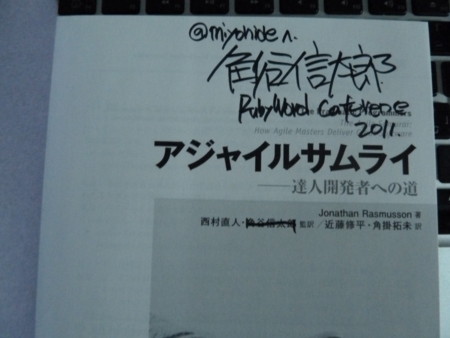 @miyohide さん
角谷信太郎
RubyWorld Conference
2011.
How Agile Masters Deliver
アジャイルサムライ
――達人開発者への道
Jonathan Rasmusson 著
西村直人・角谷信太郎 監訳／近藤修平・角掛拓未 訳